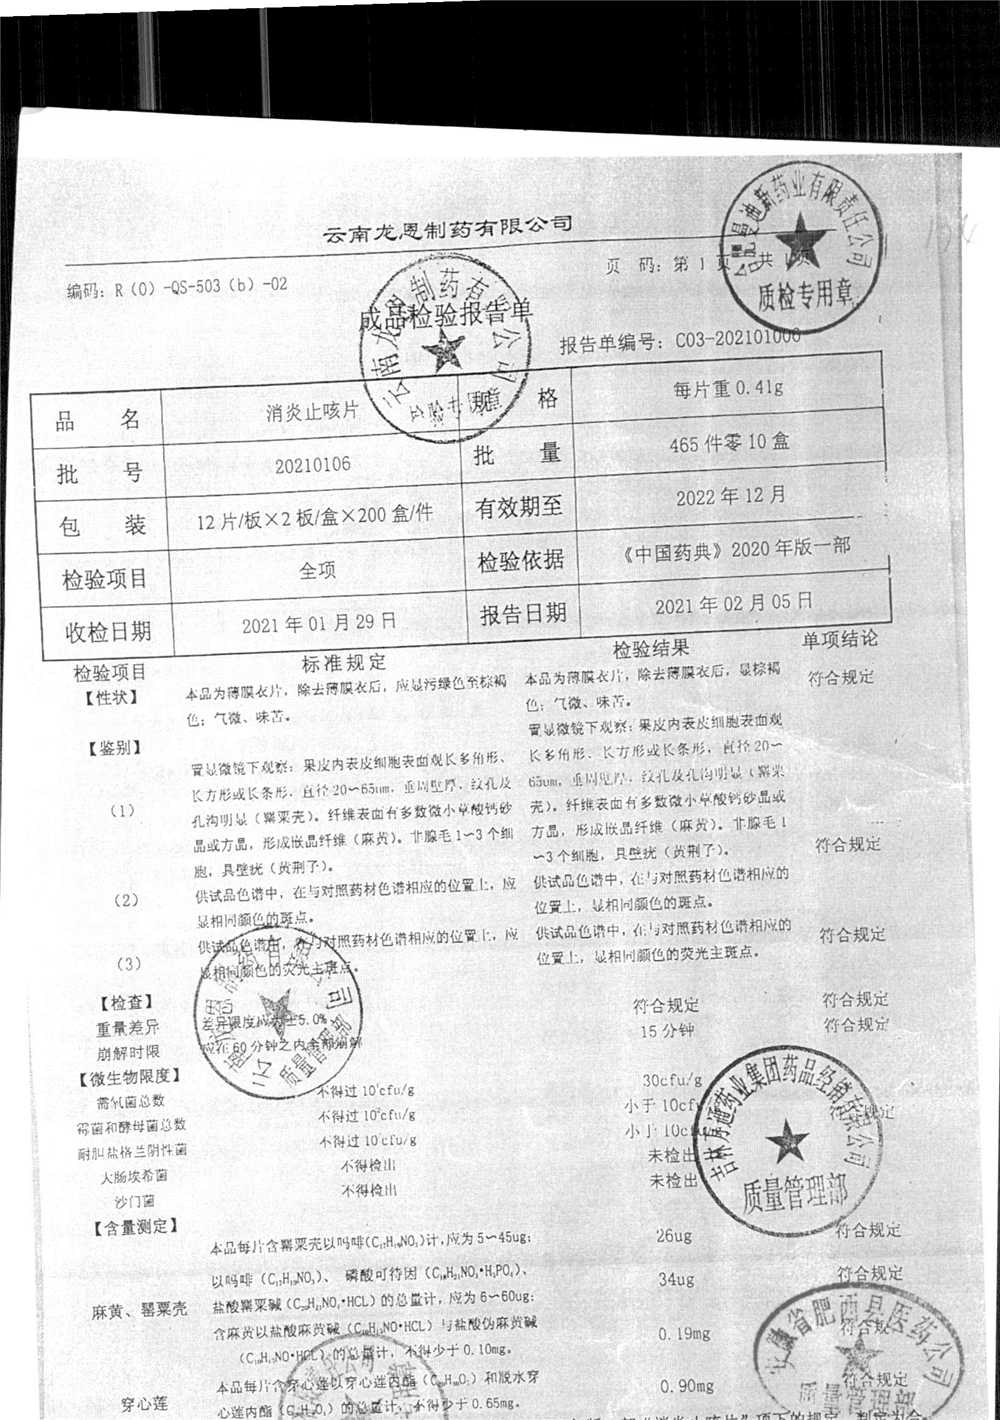 云南龙恩制药有限公司
编码：R（0）-QS-503（b）-02
页 码：第 1 页 共 1 页
成品检验报告单
报告单编号：C03-202101006
品 名 消炎止咳片 规 格 每片重 0.41g
批 号 20210106 批 量 465 件零 10 盒
包 装 12 片/板×2 板/盒×200 盒/件 有效期至 2022 年 12 月
检验项目 全项 检验依据 《中国药典》2020 年版一部
收检日期 2021 年 01 月 29 日 报告日期 2021 年 02 月 05 日
检验项目 标准规定 检验结果 单项结论
【性状】 本品为薄膜衣片，除去薄膜衣后，应显污绿色至棕褐 本品为薄膜衣片，除去薄膜衣后，显棕褐 符合规定
色；气微、味苦。 色；气微、味苦。
【鉴别】
（1） 置显微镜下观察：果皮内表皮细胞表面观长多角形、 置显微镜下观察：果皮内表皮细胞表面观
长方形或长条形，直径 20～65um，垂周壁厚，纹孔及 长多角形、长方形或长条形，直径 20～
孔沟明显（罂粟壳）。纤维表面有多数微小草酸钙砂 65um，垂周壁厚，纹孔及孔沟明显（罂粟
晶或方晶，形成嵌晶纤维（麻黄）。非腺毛 1～3 个细 壳）。纤维表面有多数微小草酸钙砂晶或
胞，具壁疣（黄荆子）。 方晶，形成嵌晶纤维（麻黄）。非腺毛 1
～3 个细胞，具壁疣（黄荆子）。 符合规定
（2） 供试品色谱中，在与对照药材色谱相应的位置上，应 供试品色谱中，在与对照药材色谱相应的
显相同颜色的斑点。 位置上，显相同颜色的斑点。
（3） 供试品色谱中，在与对照药材色谱相应的位置上，应 供试品色谱中，在与对照药材色谱相应的 符合规定
显相同颜色的荧光主斑点。 位置上，显相同颜色的荧光主斑点。
【检查】
重量差异 差异限度应为±5.0% 符合规定 符合规定
崩解时限 应在 60 分钟之内全部崩解 15 分钟 符合规定
【微生物限度】
需氧菌总数 不得过 10³cfu/g 30cfu/g
霉菌和酵母菌总数 不得过 10²cfu/g 小于 10cfu 符合规定
耐胆盐格兰阴性菌 不得过 10²cfu/g 小于 10cfu
大肠埃希菌 不得检出 未检出
沙门菌 不得检出 未检出
【含量测定】
本品每片含罂粟壳以吗啡(C₁₇H₁₉NO₃)计,应为 5～45ug; 26ug 符合规定
以吗啡（C₁₇H₁₉NO₃）、磷酸可待因（C₁₈H₂₁NO₃·H₃PO₄）、 34ug 符合规定
麻黄、罂粟壳 盐酸罂粟碱（C₂₀H₂₁NO₄·HCL）的总量计，应为 6～60ug;
含麻黄以盐酸麻黄碱（C₁₀H₁₅NO·HCL）与盐酸伪麻黄碱 0.19mg 符合规定
（C₁₀H₁₅NO·HCL）的总量计，不得少于 0.10mg。
穿心莲 本品每片含穿心莲以穿心莲内酯（C₂₀H₃₀O₅）和脱水穿 0.90mg 符合规定
心莲内酯（C₂₀H₂₈O₄）的总量计，不得少于 0.65mg。
合肥曼迪新药业有限责任公司
质检专用章
云南龙恩制药有限公司
质量管理部
吉林省通药业集团药品经销有限公司
质量管理部
安徽省肥西县医药公司
质量管理部